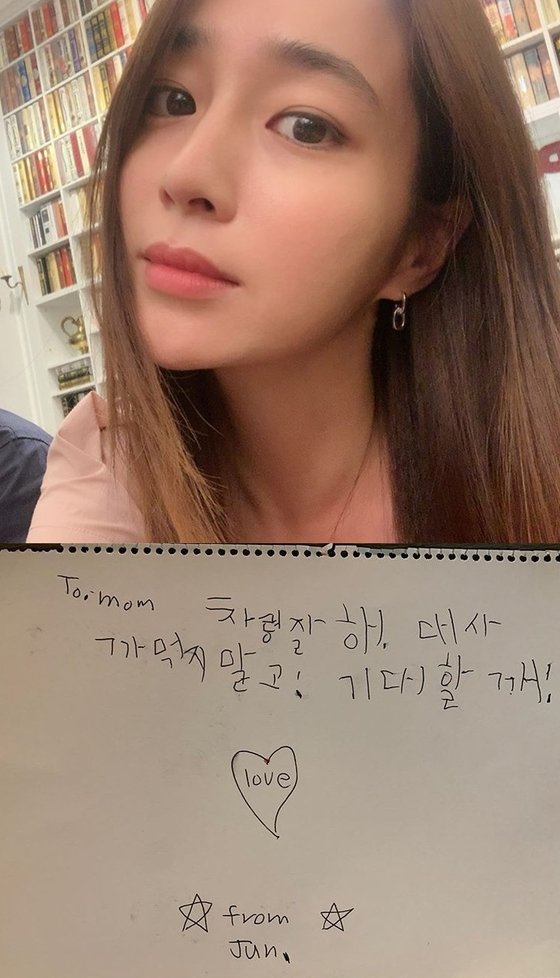 To. mom
촤령잘 해. 대사
까먹지 말고! 기다할 게!
love
from
Jun.